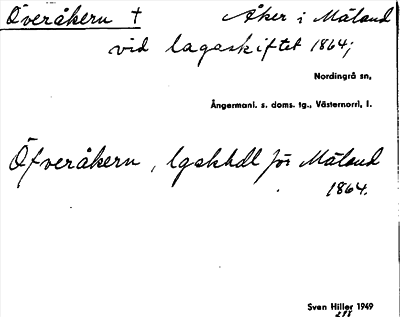 Överåkern † Åker i Måland
vid lagaskiftet 1864;
Nordingrå sn,
Ångermanl. s. doms. tg., Västernorrl, l.
Öfveråkern, lgskhdl för Måland
1864.
Sven Hiller 1949